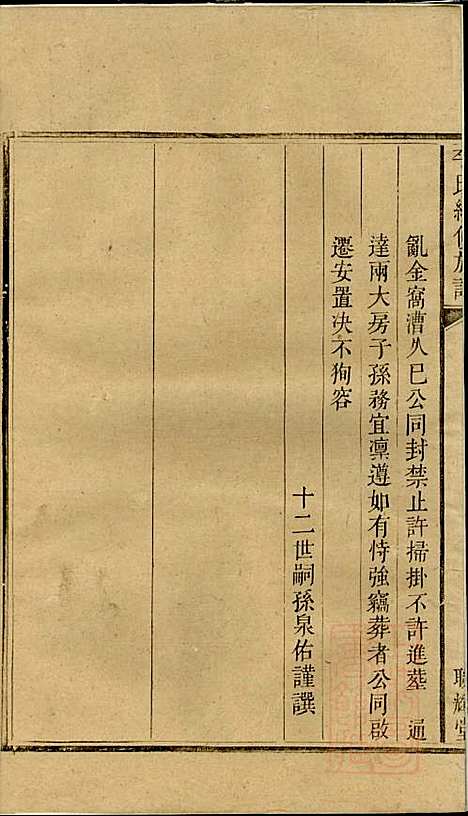 李氏續修族譜
聯輝堂
亂金窩漕久已公同封禁止許掃掛不許進塟 通
達兩大房子孫務宜凜遵如有恃強竊葬者公同啟
遷安置决不狥容
十二世嗣孫泉佑謹譔